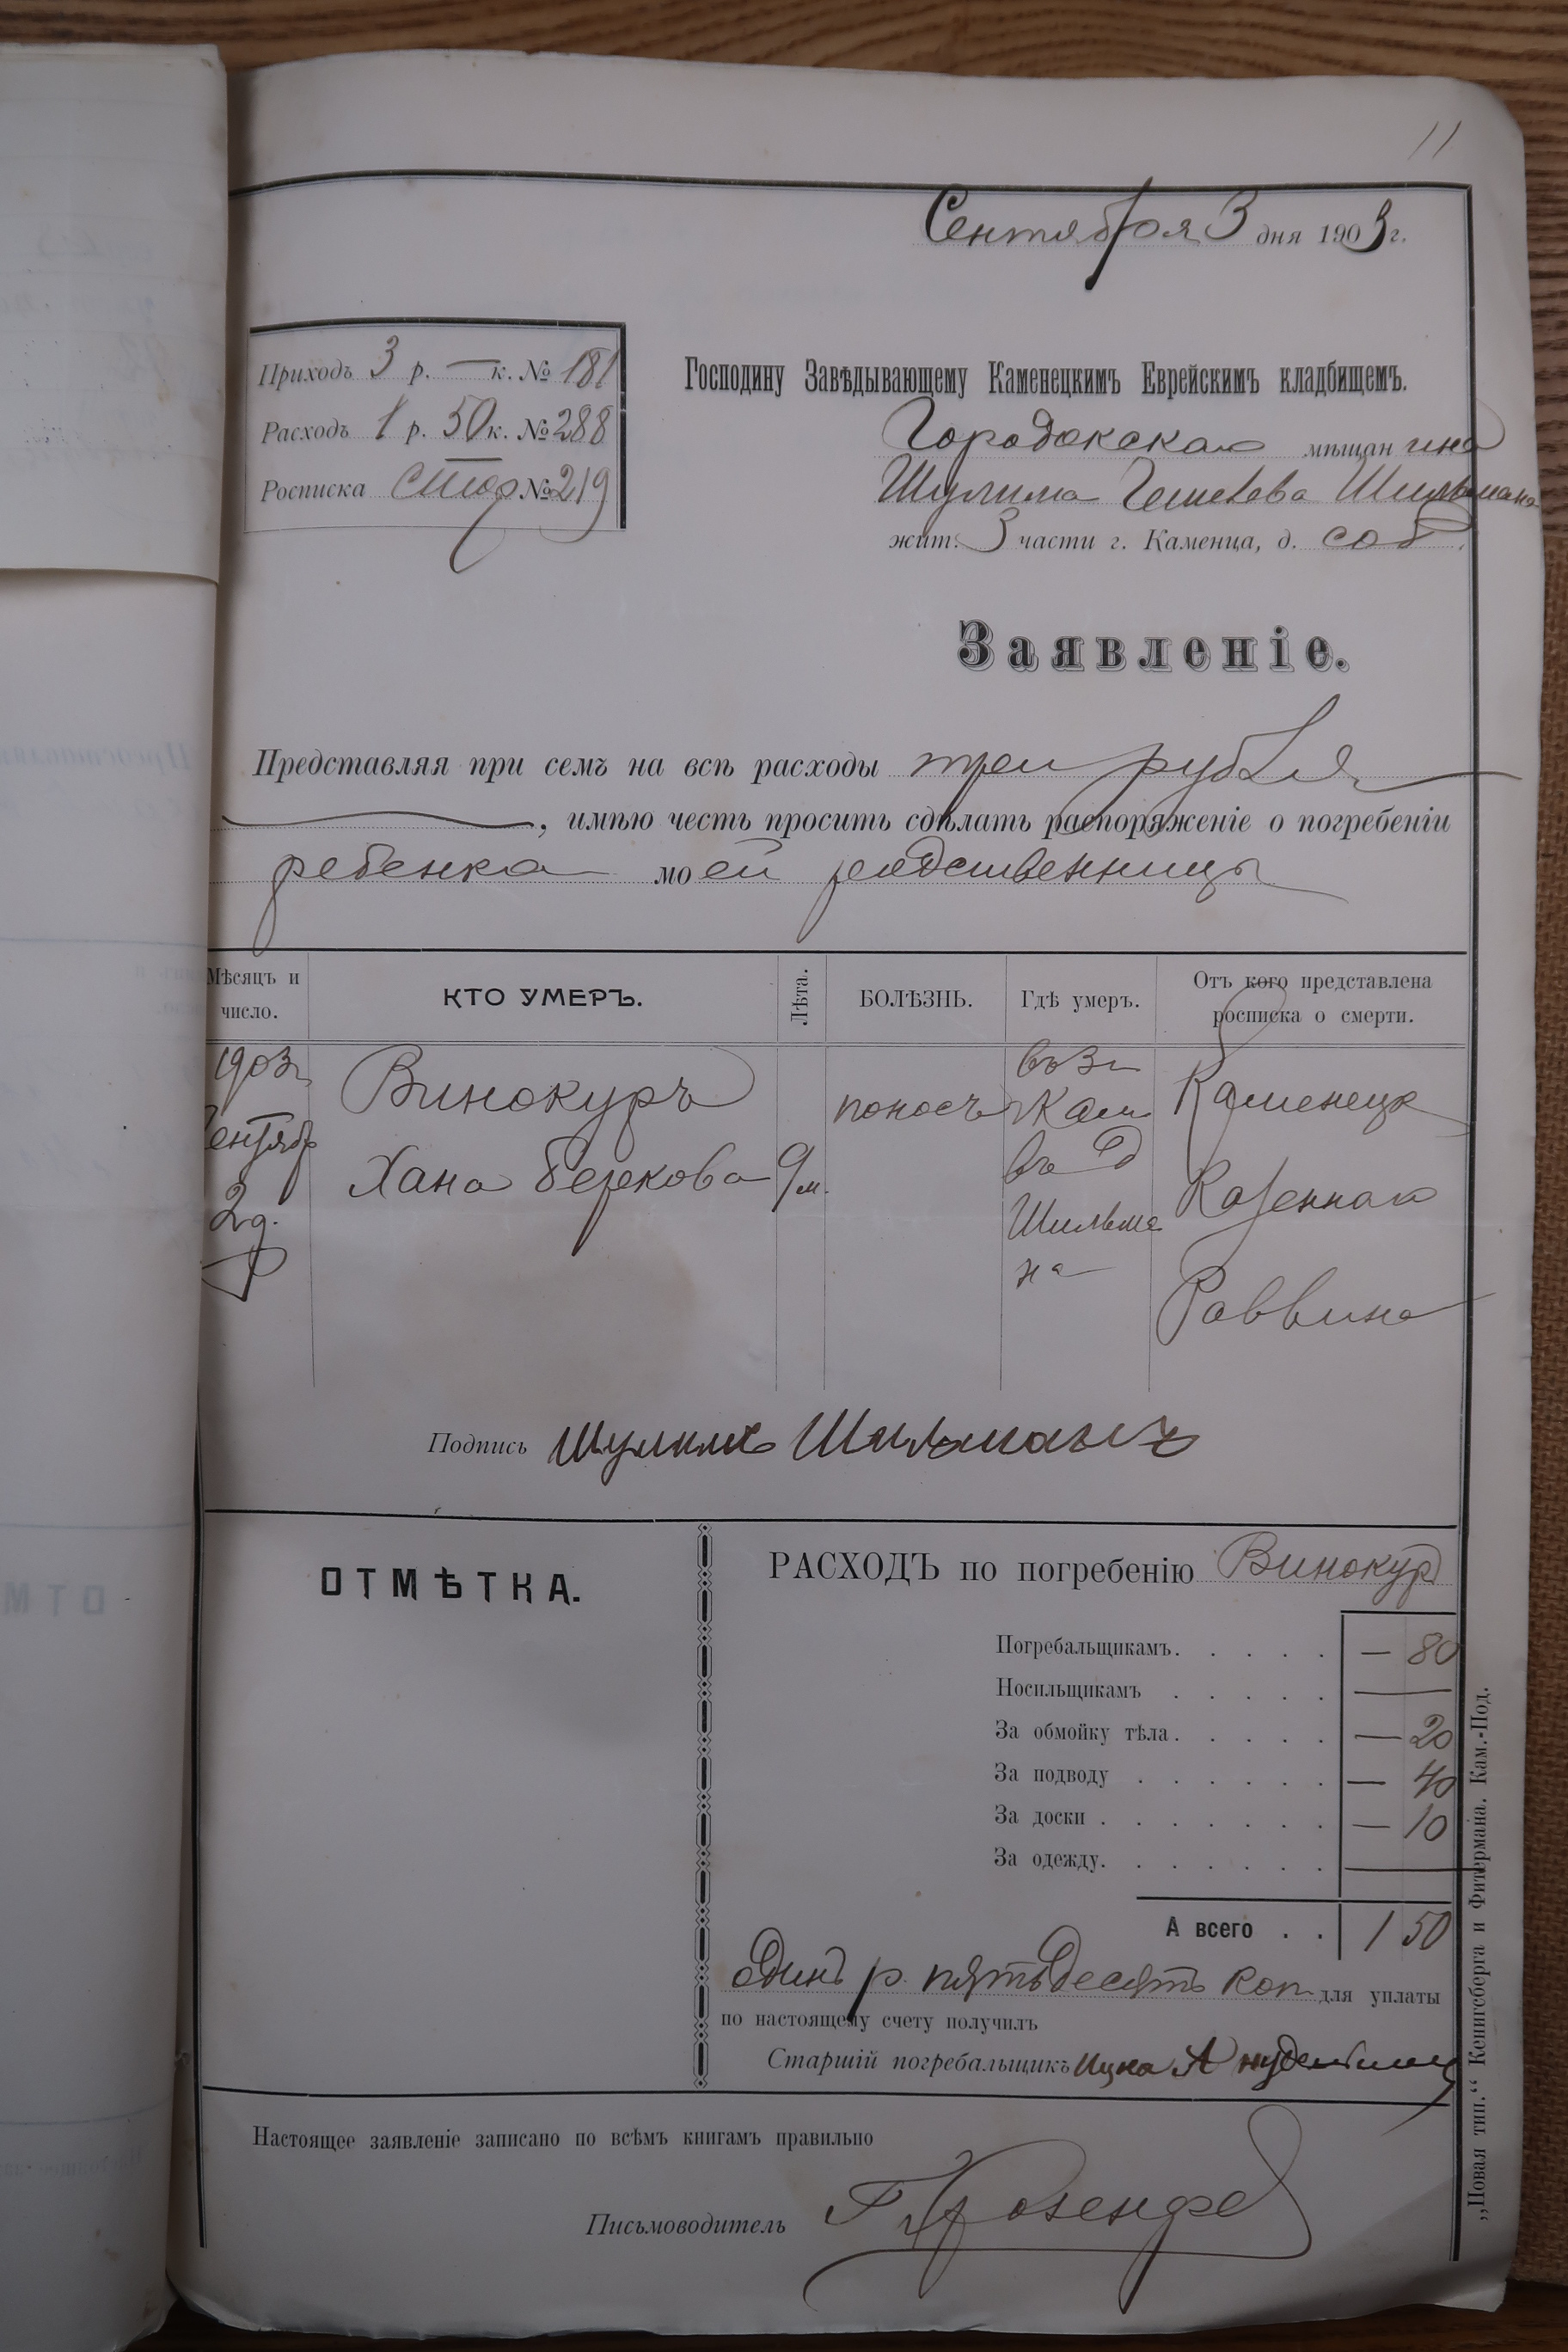 11
Сентября 3 дня 1903 г.
Приходъ 3 р. — к. № 181
Расходъ 1 р. 50 к. № 288
Росписка стор № 219
Господину Завѣдывающему Каменецкимъ Еврейскимъ кладбищемъ.
мѣщанина
Шулима Шильмана
жит. 3 части г. Каменца, д. соб.
Заявленіе.
Представляя при семъ на всѣ расходы три рубля
, имѣю честь просить сдѣлать распоряженіе о погребеніи
ребенка моей родственницы
Мѣсяцъ и число.
КТО УМЕРЪ.
Лѣта.
БОЛѢЗНЬ.
Гдѣ умеръ.
Отъ кого представлена росписка о смерти.
1903 г.
Сентябр
2 д.
Винокуръ
Хана Беркова
9 м.
поносъ
въ 3 ч
г Кам
въ д
Шильма
на
Каменецк
Казеннаго
Раввина
Подпись Шулимъ Шильманъ
ОТМѢТКА.
РАСХОДЪ по погребенію Винокур
Погребальщикамъ. — 80
Носильщикамъ —
За обмойку тѣла. — 20
За подводу — 40
За доски — 10
За одежду. —
А всего 1 50
одинъ р. пятьдесятъ коп для уплаты
по настоящему счету получилъ
Старшій погребальщикъ Ицко
Настоящее заявленіе записано по всѣмъ книгамъ правильно
Письмоводитель
„Новая тип.“ Кенигсберга и Фитермана. Кам.-Под.